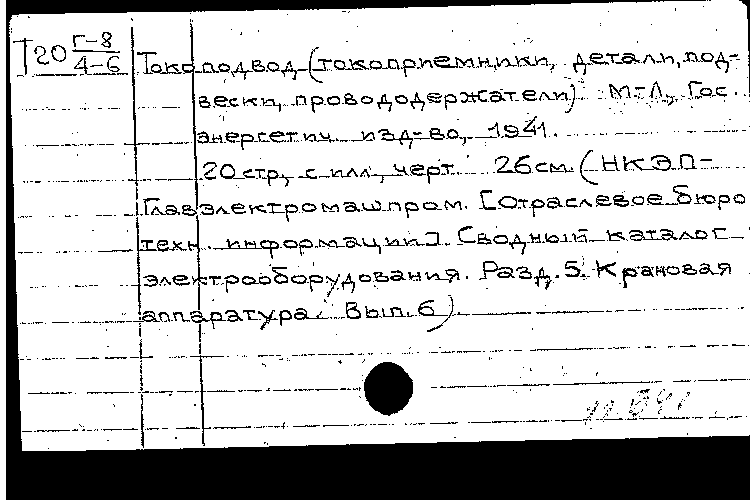 Т20 Г-8
4-6
Токоподвод (токоприемники, детали, под-
вески, провододержатели) М-Л, Гос.
энергетич. изд-во, 1941.
20 стр, с илл, черт. 26 см. (НКЭП-
Главэлектромашпром. [Отраслевое бюро
техн. информации]. Сводный каталог
электрооборудования. Разд. 5. Крановая
аппаратура. Вып. 6).